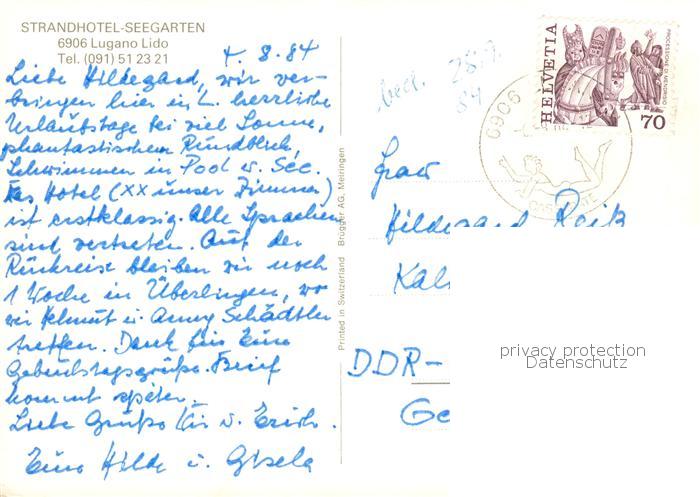 STRANDHOTEL-SEEGARTEN
6906 Lugano Lido
Tel. (091) 51 23 21
4. 8. 84
Liebe Hildegard, wir ver-
bringen hier in L. herrliche
Urlaubstage bei viel Sonne,
phantastischem Rundblick,
Schwimmen in Pool u. See.
Das Hotel (XX unser Zimmer)
ist erstklassig. Alle Sprachen
sind vertreten. Auf der
Rückreise bleiben wir noch
1 Woche in Überlingen, wo
wir Helmut u. Anny Schädtler
treffen. Dank für Eure
Geburtstagsgrüße. Brief
kommt später.
Liebe Grüße Dir u. Erich.
Eure Hilde u. Gisela
Printed in Switzerland Brügger AG, Meiringen
28.9.
84
HELVETIA
PROCESSIONE DI MENDRISIO
70
6906
Frau
Hildegard
DDR-
Ge
privacy protection
Datenschutz